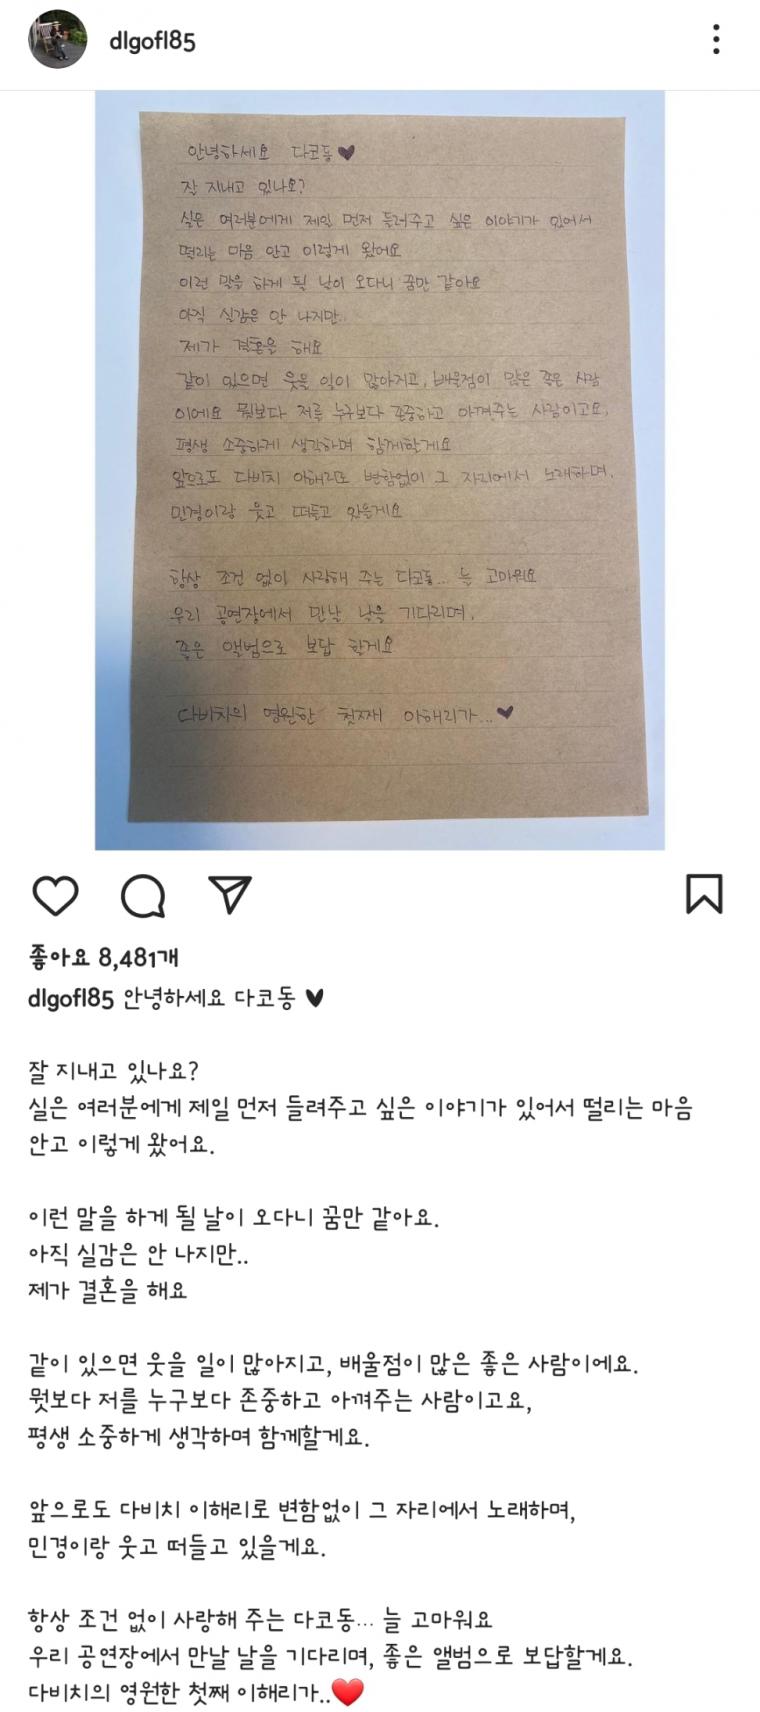 dlgofl85
안녕하세요 다코동♥
잘 지내고 있나요?
실은 여러분에게 제일 먼저 들려주고 싶은 이야기가 있어서
떨리는 마음 안고 이렇게 왔어요
이런 말을 하게 될 날이 오다니 꿈만 같아요
아직 실감은 안 나지만..
제가 결혼을 해요
같이 있으면 웃을 일이 많아지고, 배울점이 많은 좋은 사람
이에요 뭣보다 저를 누구보다 존중하고 아껴주는 사람이고요,
평생 소중하게 생각하며 함께할게요
앞으로도 다비치 이해리로 변함없이 그 자리에서 노래하며,
민경이랑 웃고 떠들고 있을게요
항상 조건 없이 사랑해 주는 다코동... 늘 고마워요
우리 공연장에서 만날 날을 기다리며,
좋은 앨범으로 보답 할게요
다비치의 영원한 첫째 이해리가...♥
좋아요 8,481개
dlgofl85 안녕하세요 다코동 ♥
잘 지내고 있나요?
실은 여러분에게 제일 먼저 들려주고 싶은 이야기가 있어서 떨리는 마음
안고 이렇게 왔어요.
이런 말을 하게 될 날이 오다니 꿈만 같아요.
아직 실감은 안 나지만..
제가 결혼을 해요
같이 있으면 웃을 일이 많아지고, 배울점이 많은 좋은 사람이에요.
뭣보다 저를 누구보다 존중하고 아껴주는 사람이고요,
평생 소중하게 생각하며 함께할게요.
앞으로도 다비치 이해리로 변함없이 그 자리에서 노래하며,
민경이랑 웃고 떠들고 있을게요.
항상 조건 없이 사랑해 주는 다코동… 늘 고마워요
우리 공연장에서 만날 날을 기다리며, 좋은 앨범으로 보답할게요.
다비치의 영원한 첫째 이해리가..❤️